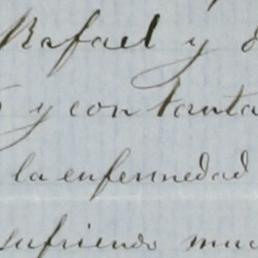 Rafael y
y con tanta
la enfermedad
sufriendo muc